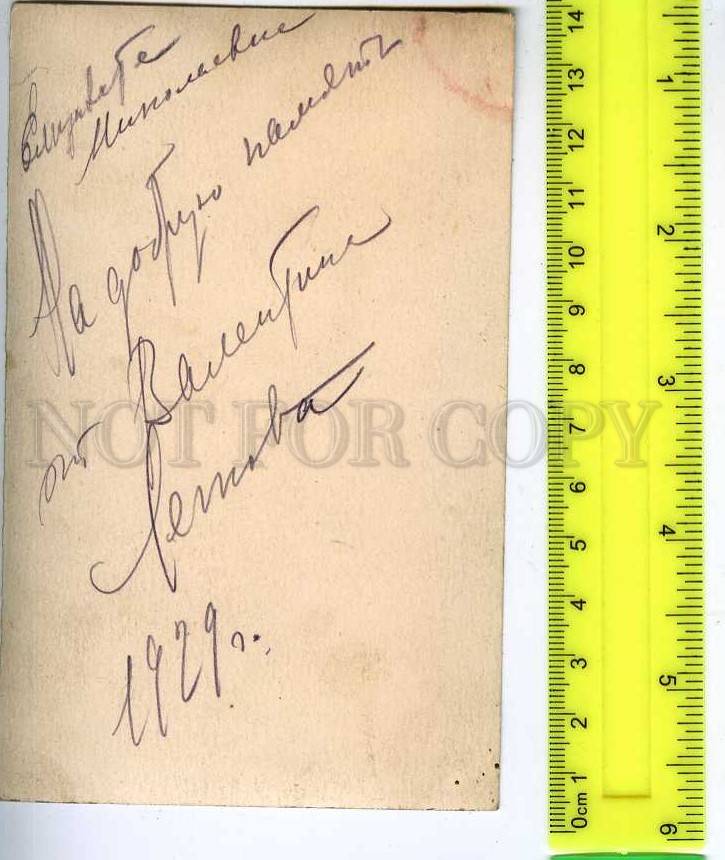 Елизавете
Николаевне
На добрую память
от Валентина
1929 г.
NOT FOR COPY
14
13
12
11
10
9
8
7
6
5
4
3
2
1
0cm
1
2
3
4
5
6